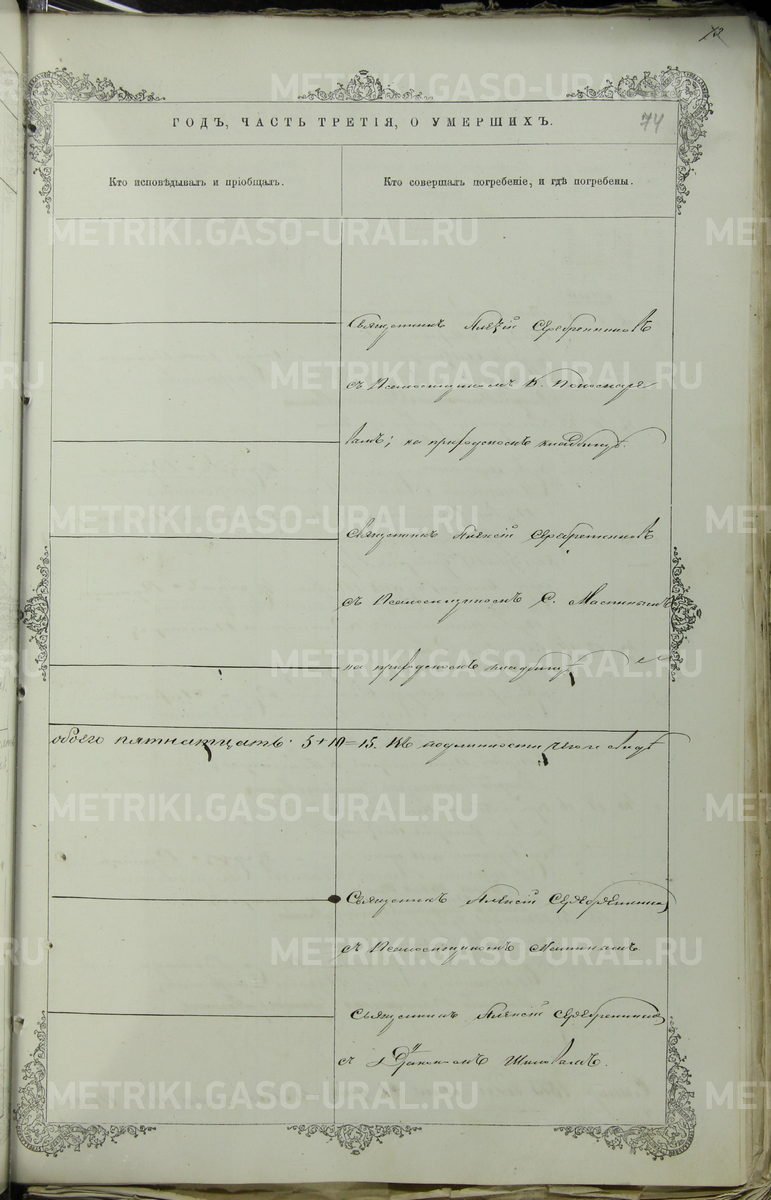 74
ГОДЪ, ЧАСТЬ ТРЕТІЯ, О УМЕРШИХЪ.
Кто исповѣдывалъ и пріобщалъ.
Кто совершалъ погребеніе, и гдѣ погребены.
Священникъ Алексій Серебренниковъ
съ Псаломщикомъ В. Пономаре
вымъ; на приходскомъ кладбищѣ.
Священникъ Алексій Серебренниковъ
съ Псаломщикомъ С.
на приходскомъ кладбищѣ
обоего пятнатцать. 5+10=15. Въ подлинности
Священникъ Алексій Серебренниковъ
съ Псаломщикомъ
Священникъ Алексій Серебренниковъ
съ Діакономъ
METRIKI.GASO-URAL.RU